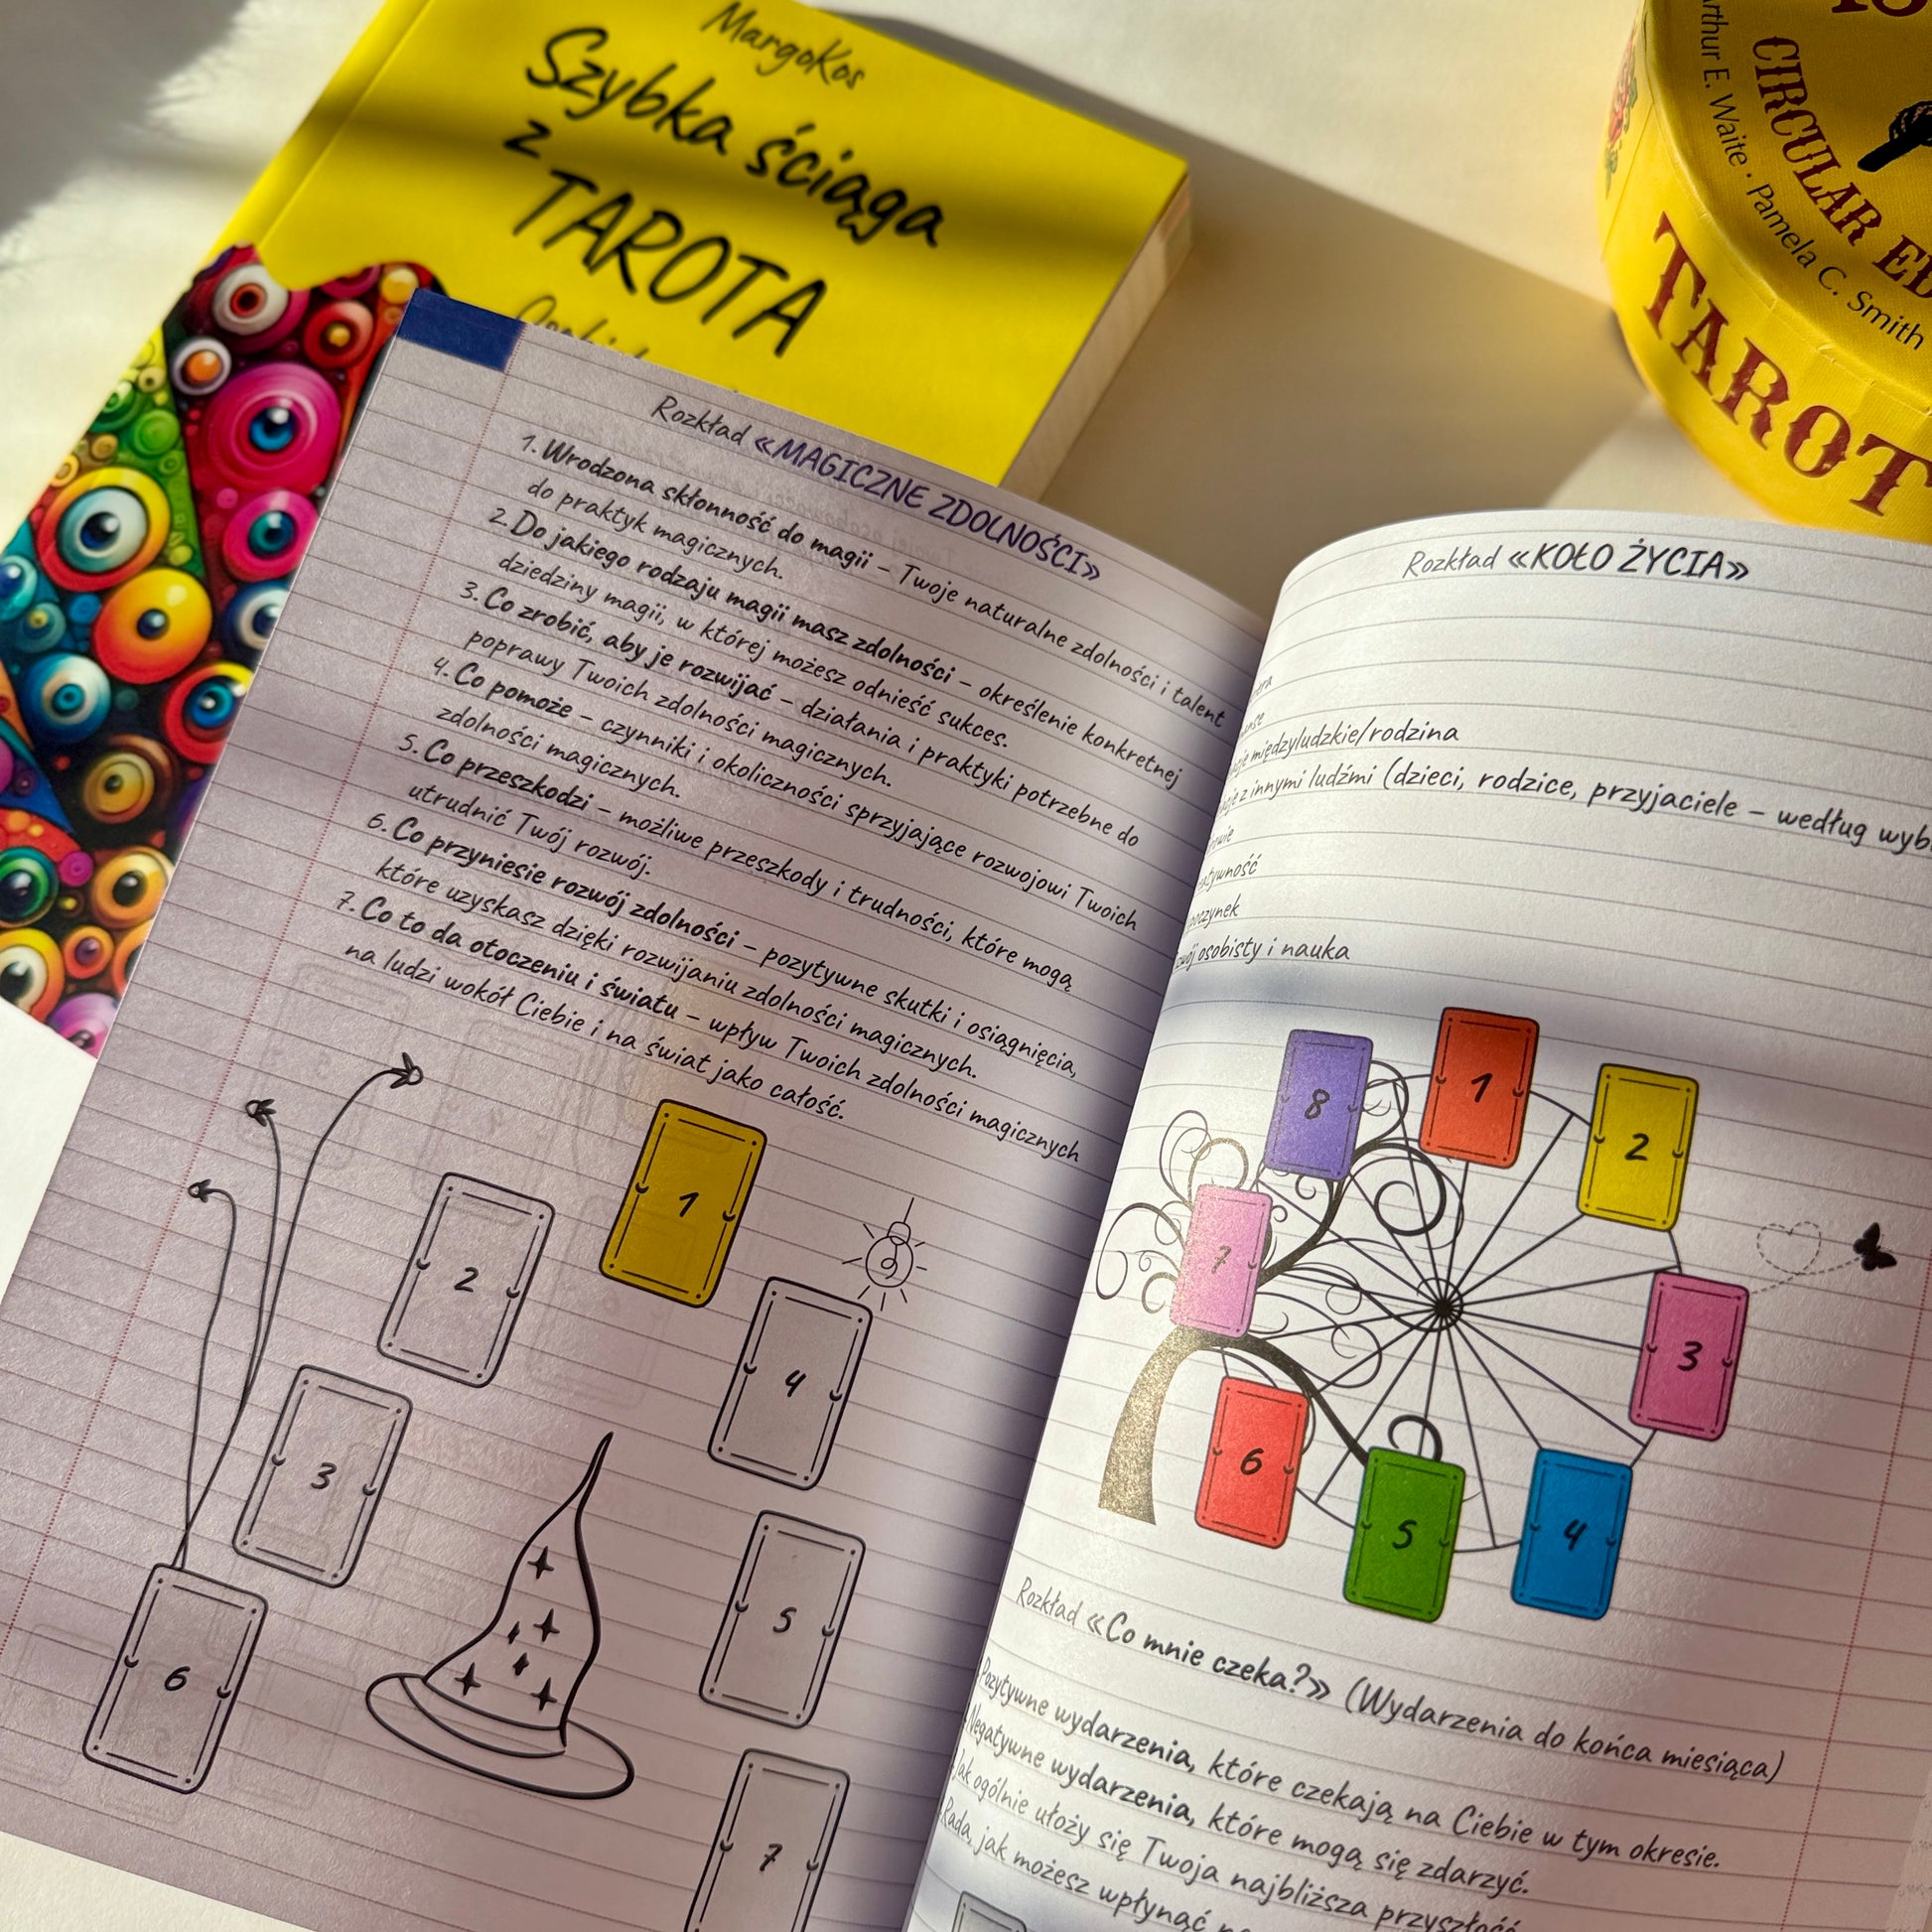 MargoKos
Szybka ściąga
z
TAROTA
CIRCULAR
Arthur E. Waite · Pamela C. Smith
TAROT
Rozkład «MAGICZNE ZDOLNOŚCI»
1. Wrodzona skłonność do magii – Twoje naturalne zdolności i talent
do praktyk magicznych.
2. Do jakiego rodzaju magii masz zdolności – określenie konkretnej
dziedziny magii, w której możesz odnieść sukces.
3. Co zrobić, aby je rozwijać – działania i praktyki potrzebne do
poprawy Twoich zdolności magicznych.
4. Co pomoże – czynniki i okoliczności sprzyjające rozwojowi Twoich
zdolności magicznych.
5. Co przeszkodzi – możliwe przeszkody i trudności, które mogą
utrudnić Twój rozwój.
6. Co przyniesie rozwój zdolności – pozytywne skutki i osiągnięcia,
które uzyskasz dzięki rozwijaniu zdolności magicznych.
7. Co to da otoczeniu i światu – wpływ Twoich zdolności magicznych
na ludzi wokół Ciebie i na świat jako całość.
1
2
3
4
5
6
7
Rozkład «KOŁO ŻYCIA»
międzyludzkie/rodzina
z innymi ludźmi (dzieci, rodzice, przyjaciele – według
osobisty i nauka
8
1
2
7
3
6
5
4
Rozkład «Co mnie czeka?» (Wydarzenia do końca miesiąca)
Pozytywne wydarzenia, które czekają na Ciebie w tym okresie.
Negatywne wydarzenia, które mogą się zdarzyć.
Jak ogólnie ułoży się Twoja najbliższa przyszłość
Rada, jak możesz wpłynąć